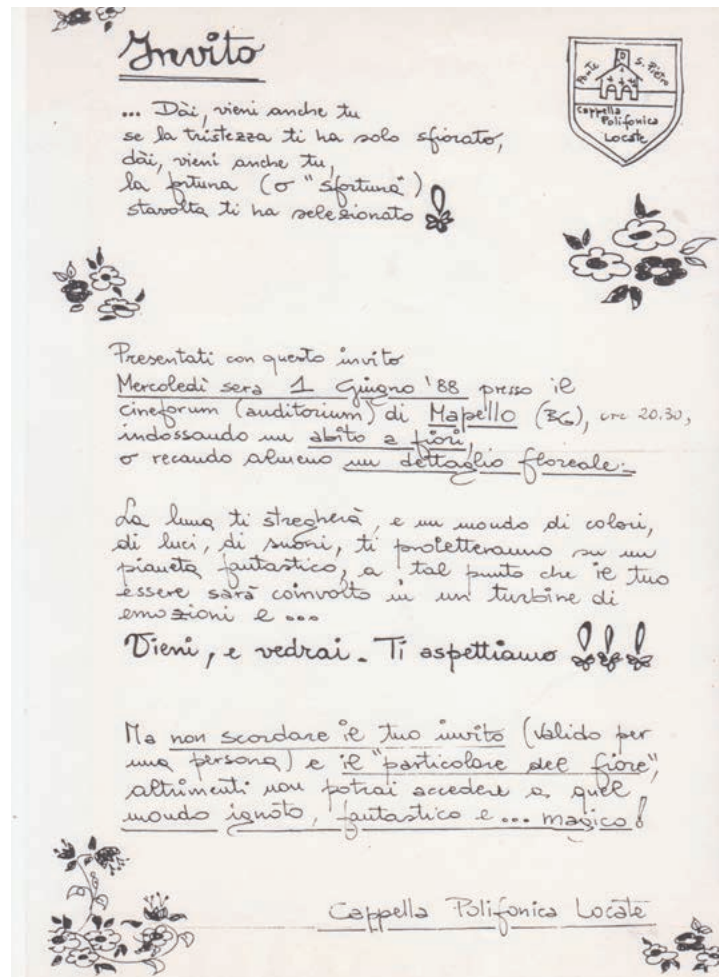 Invito
Ponte S. Pietro
Cappella
Polifonica
Locate
... Dài, vieni anche tu
se la tristezza ti ha solo sfiorato,
dài, vieni anche tu,
la fortuna (o "sfortuna")
stavolta ti ha selezionato !
Presentati con questo invito
Mercoledì sera 1 Giugno '88 presso il
cineforum (auditorium) di Mapello (BG), ore 20.30,
indossando un abito a fiori,
o recando almeno un dettaglio floreale.
La luna ti stregherà, e un mondo di colori,
di luci, di suoni, ti proietteranno su un
pianeta fantastico, a tal punto che il tuo
essere sarà coinvolto in un turbine di
emozioni e ...
Vieni, e vedrai. Ti aspettiamo !!!
Ma non scordare il tuo invito (valido per
una persona) e il "particolare del fiore",
altrimenti non potrai accedere a quel
mondo ignoto, fantastico e ... magico !
Cappella Polifonica Locate